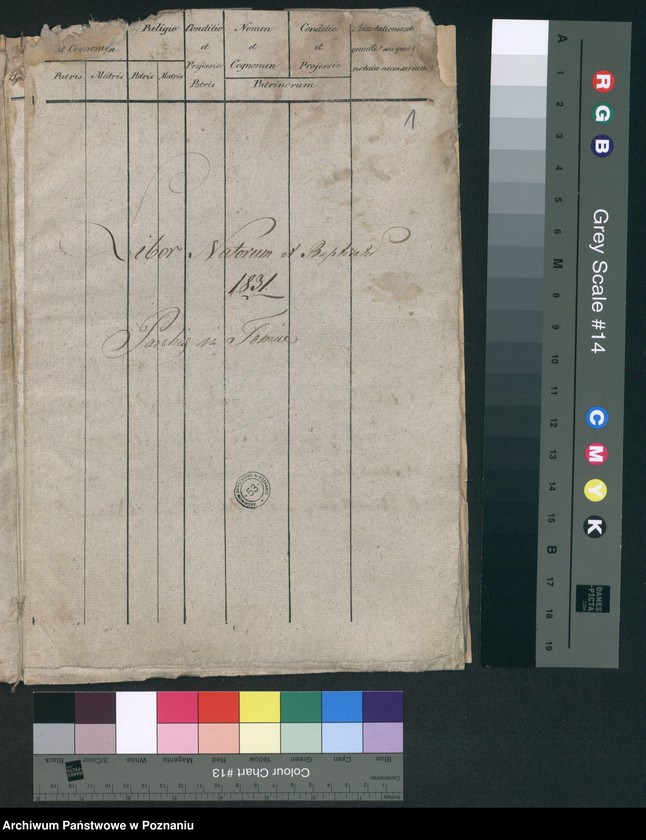 Religio Conditio Nomen Conditio Adnotationes de
et Cognomen et et et
Professio Cognomen Professio notatu necessariis
Patris Matris Patris Matris Patris Patrinorum
1.
Liber Natorum et Baptisat
1831
53
A 1 2 3 4 5 6 M 8 9 10 11 12 13 14 15 B 17 18 19
R G B
Grey Scale #14
C M Y K
DANES
PICTA
.COM
Black 3/Color White Magenta Red Yellow Green Cyan Blue
Colour Chart #13
DANES
PICTA
Centimetres
Inches
Archiwum Państwowe w Poznaniu